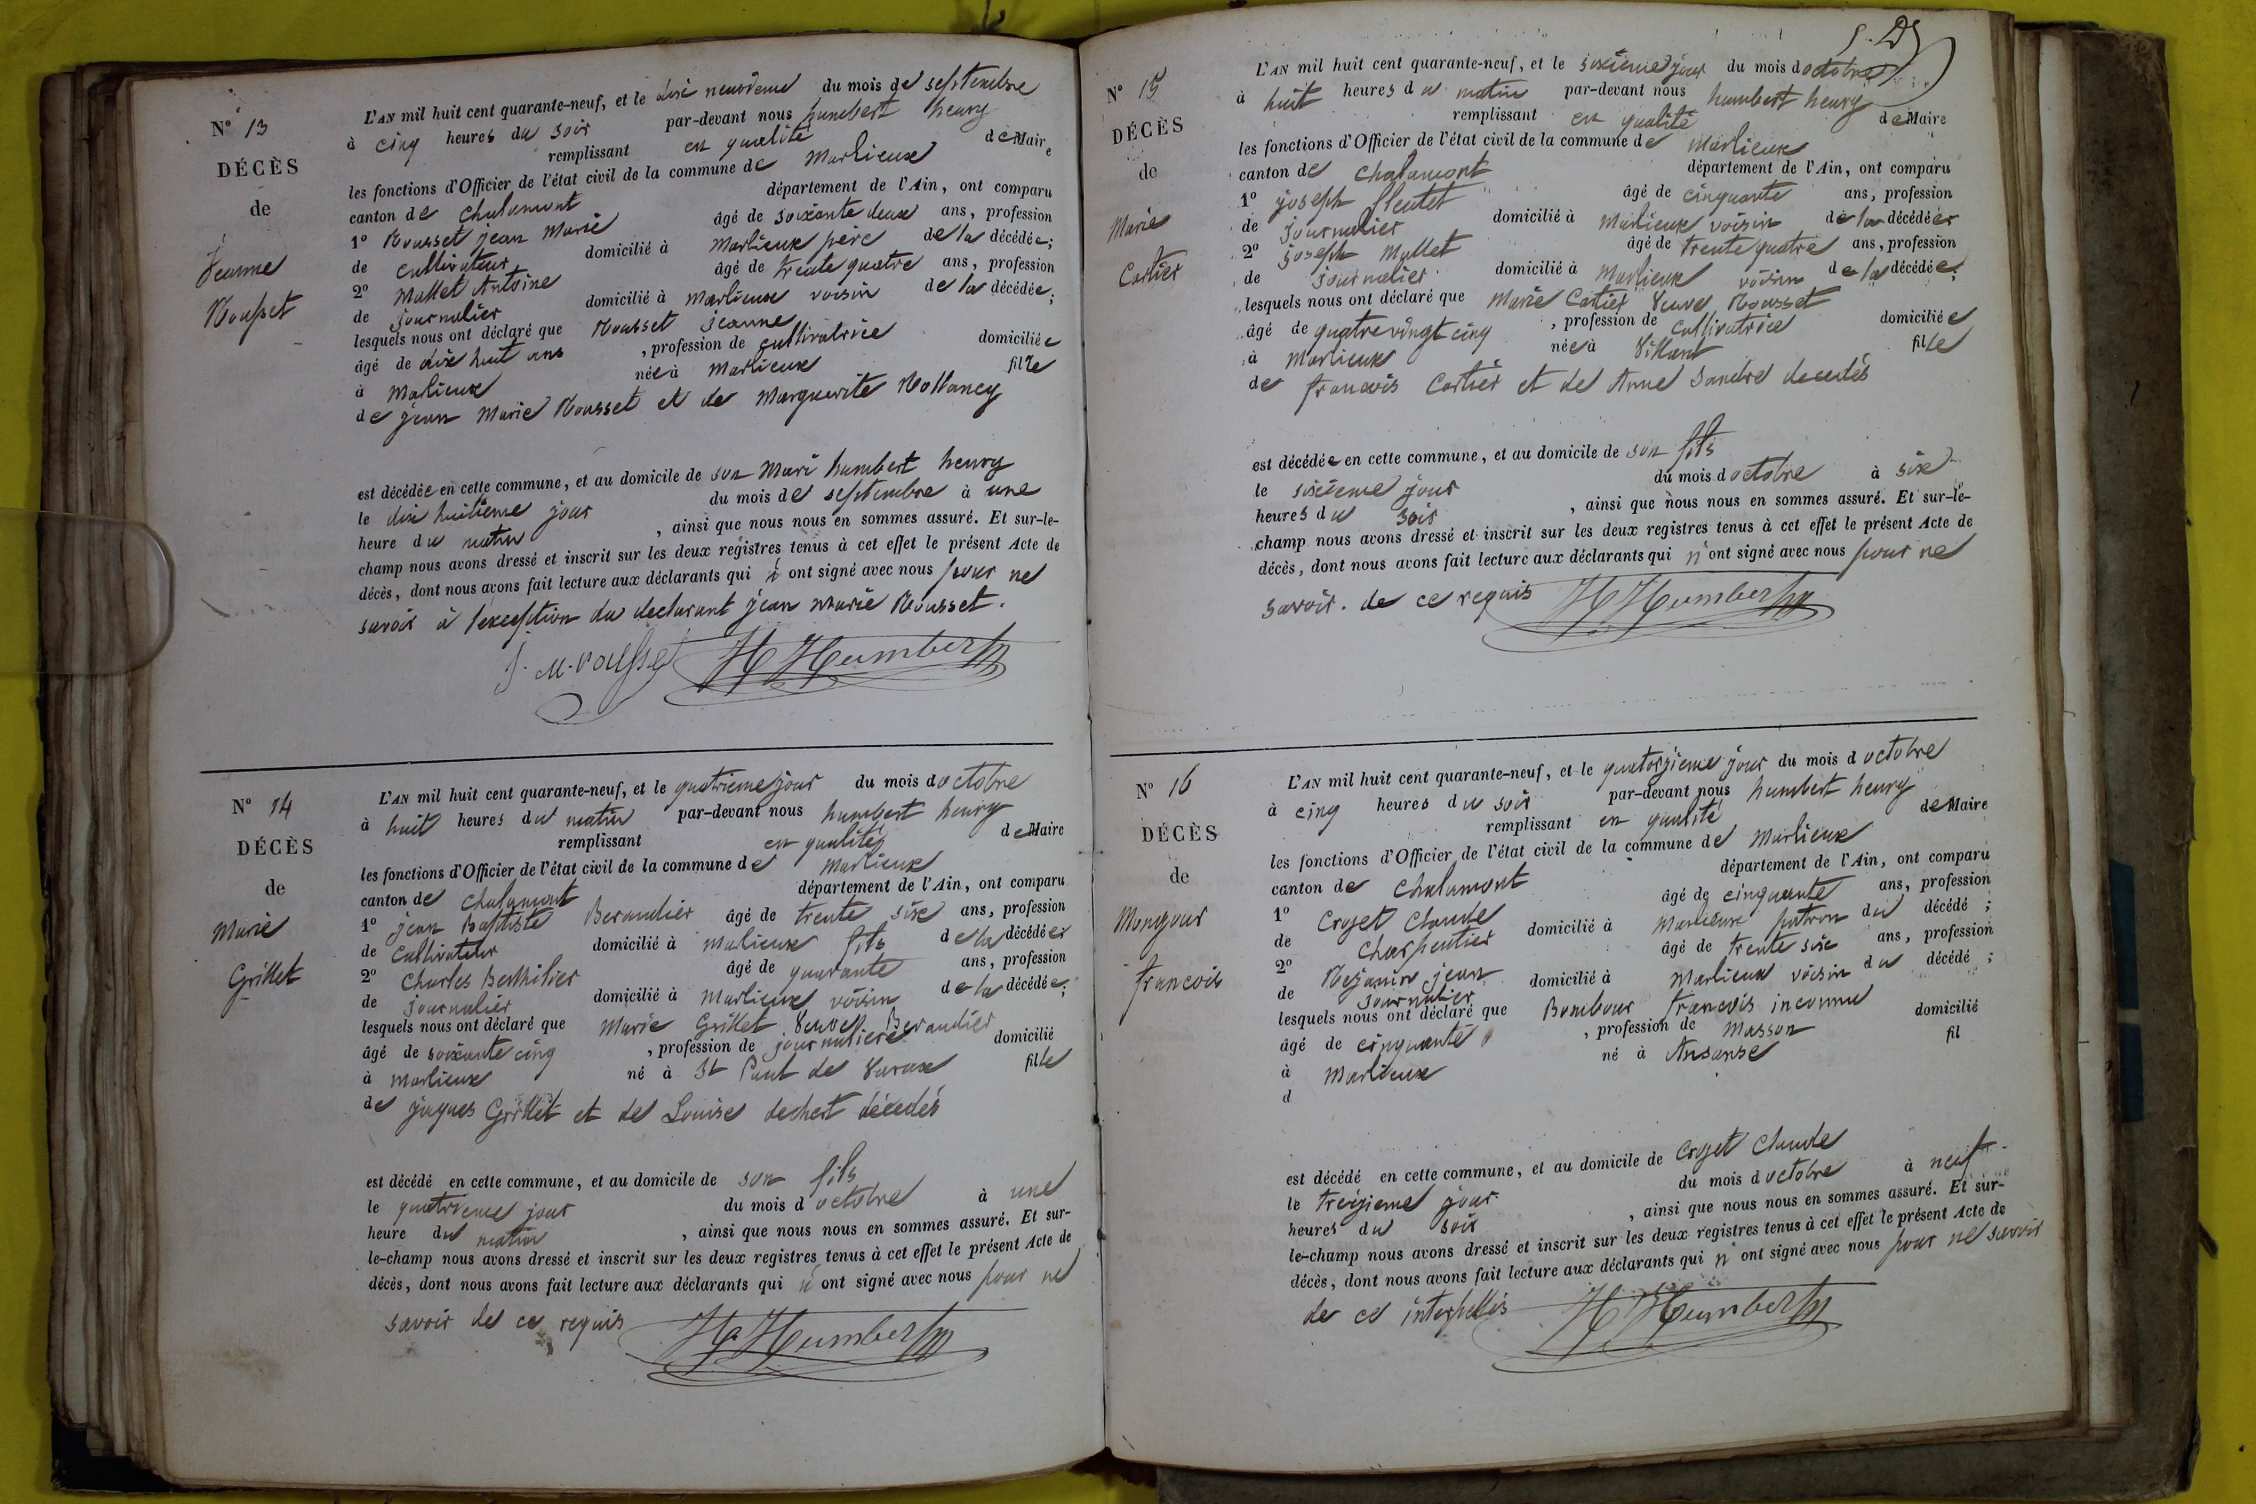 N° 13
DÉCÈS
de
Jeanne
Rousset
L'AN mil huit cent quarante-neuf, et le dixi neuvieme du mois de septembre
à cinq heures du soir par-devant nous humbert henry
remplissant en qualité de Maire
les fonctions d'Officier de l'état civil de la commune de Marlieux
canton de Chalamont département de l'Ain, ont comparu
1° Rousset jean Marie âgé de soixante deux ans, profession
de cultivateur domicilié à Marlieux père de la décédée;
2° Mallet Antoine âgé de trente quatre ans, profession
de journalier domicilié à Marlieux voisin de la décédée;
lesquels nous ont déclaré que Rousset jeanne
âgé de dix huit ans, profession de cultivatrice domiciliée
à Marlieux née à Marlieux fille
de jean Marie Rousset et de Marguerite
est décédée en cette commune, et au domicile de son Mari humbert henry
le dix huitieme jour du mois de septembre à une
heure du matin, ainsi que nous nous en sommes assuré. Et sur-le-
champ nous avons dressé et inscrit sur les deux registres tenus à cet effet le présent Acte de
décès, dont nous avons fait lecture aux déclarants qui n'ont signé avec nous pour ne
savoir à l'exception du declarant jean Marie Rousset.
J. M. rousset H Humbert
N° 14
DÉCÈS
de
Marie
Grillet
L'AN mil huit cent quarante-neuf, et le quatrieme jour du mois doctobre
à huit heures du matin par-devant nous humbert henry
remplissant en qualité de Maire
les fonctions d'Officier de l'état civil de la commune de Marlieux
canton de Chalamont département de l'Ain, ont comparu
1° jean Baptiste Beraudier âgé de trente six ans, profession
de Cultivateur domicilié à malieux fils de la décédéer
2° Charles Berthilier âgé de quarante ans, profession
de journalier domicilié à Marlieux voisin de la décédée;
lesquels nous ont déclaré que Marie Grillet Veuve Beraudier
âgé de soixante cinq, profession de journaliere domicilié
à Marlieux né à St Paul de Varax fille
de jaques Grillet et de Louise dechet décedés
est décédé en cette commune, et au domicile de son fils
le quatrieme jour du mois d octobre à une
heure du matin, ainsi que nous nous en sommes assuré. Et sur-
le-champ nous avons dressé et inscrit sur les deux registres tenus à cet effet le présent Acte de
décès, dont nous avons fait lecture aux déclarants qui n'ont signé avec nous pour ne
savoir de ce requis H Humbert
N° 15
DÉCÈS
de
Marie
Cartier
L'AN mil huit cent quarante-neuf, et le sixieme jour du mois doctobre
à huit heures du matin par-devant nous humbert henry
remplissant en qualité de Maire
les fonctions d'Officier de l'état civil de la commune de Marlieux
canton de Chalamont département de l'Ain, ont comparu
1° joseph fleutet âgé de cinquante ans, profession
de Journalier domicilié à Marlieux voisin de la décédéer
2° joseph Mallet âgé de trente quatre ans, profession
de journalier domicilié à Marlieux voisin de la décédée;
lesquels nous ont déclaré que Marie Cartier Veuve Rousset
âgé de quatre vingt cinq, profession de cultivatrice domiciliée
à Marlieux née à fille
de francois Cartier et de Anne Sandre decedés
est décédée en cette commune, et au domicile de son fils
le sixieme jour du mois doctobre à six
heures du soir, ainsi que nous nous en sommes assuré. Et sur-le-
champ nous avons dressé et inscrit sur les deux registres tenus à cet effet le présent Acte de
décès, dont nous avons fait lecture aux déclarants qui n'ont signé avec nous pour ne
savoir. de ce requis H Humbert
N° 16
DÉCÈS
de
Mongour
francois
L'AN mil huit cent quarante-neuf, et le quatorzieme jour du mois d octobre
à cinq heures du soir par-devant nous humbert henry
remplissant en qualité de Maire
les fonctions d'Officier de l'état civil de la commune de Marlieux
canton de Chalamont département de l'Ain, ont comparu
1° Crozet Claude âgé de cinquante ans, profession
de Charpentier domicilié à Marlieux patron du décédé;
2° Rejanin jean âgé de trente six ans, profession
de journalier domicilié à Marlieux voisin du décédé;
lesquels nous ont déclaré que Bombour francois inconnu
âgé de cinquante, profession de Masson domicilié
à Marlieux né à Ansanse fil
d
est décédé en cette commune, et au domicile de Crozet Claude
le treizieme jour du mois doctobre à neuf
heures du soir, ainsi que nous nous en sommes assuré. Et sur-
le-champ nous avons dressé et inscrit sur les deux registres tenus à cet effet le présent Acte de
décès, dont nous avons fait lecture aux déclarants qui n'ont signé avec nous pour ne savoir
de ce interpellés H Humbert